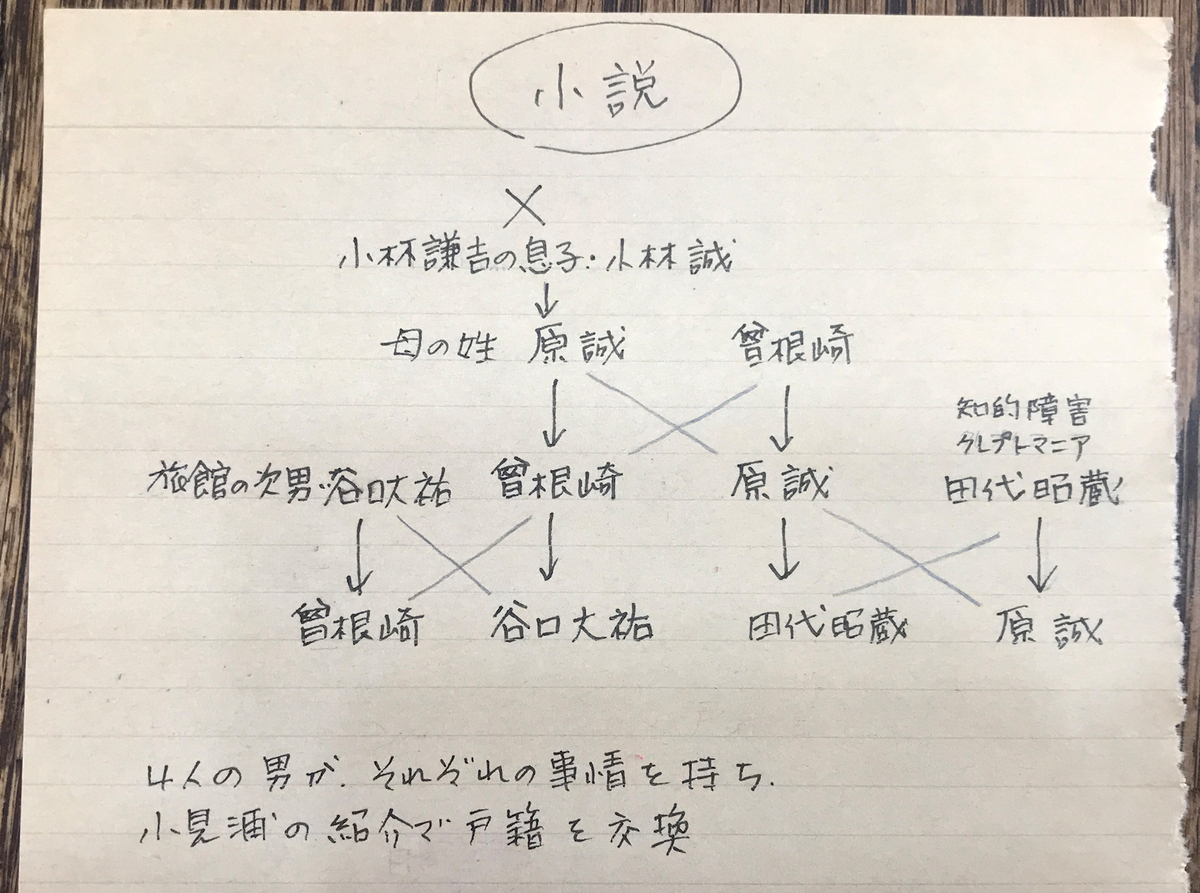 小説
×
小林謙吉の息子・小林誠
↓
母の姓 原誠 曾根崎
↓ ↓
知的障害
クレプトマニア
旅館の次男・谷口大祐 曾根崎 原誠 田代昭蔵
↓ ↓ ↓ ↓
曾根崎 谷口大祐 田代昭蔵 原誠
4人の男が、それぞれの事情を持ち、
小見浦の紹介で戸籍を交換